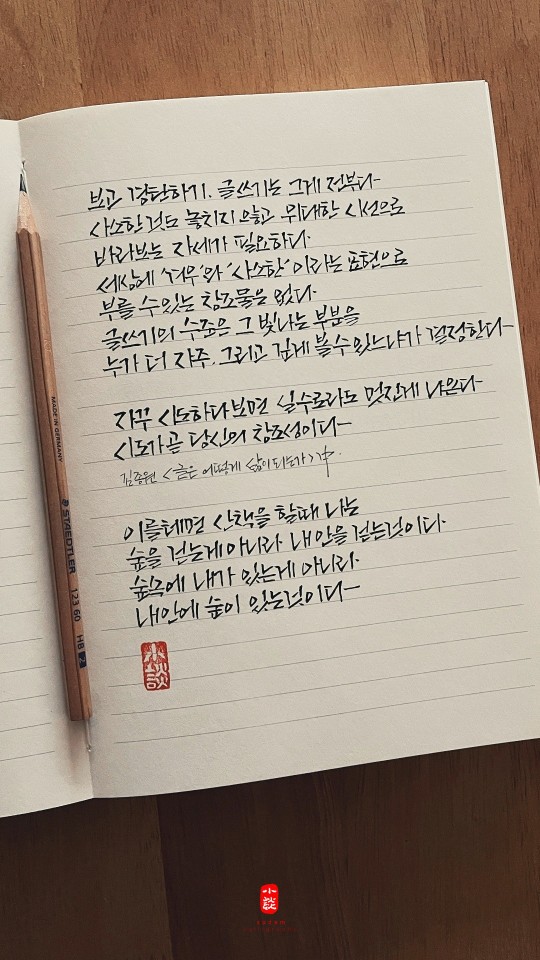 보고 경탄하기. 글쓰기는 그게 전부다
사소한 것도 놓치지 않고 위대한 시선으로
바라보는 자세가 필요하다.
세상에 '겨우'와 '사소한'이라는 표현으로
부를 수 있는 창조물은 없다.
글쓰기의 수준은 그 빛나는 부분을
누가 더 자주, 그리고 깊게 볼 수 있느냐가 결정한다
자꾸 시도하다 보면 실수로라도 멋진게 나온다
시도가 곧 당신의 창조성이다
김종원 <글은 어떻게 삶이 되는가> 中.
이를테면 산책을 할때 나는
숲을 걷는게 아니라 내 안을 걷는것이다.
숲속에 내가 있는게 아니라.
내안에 숲이 있는것이다
小談
MADE IN GERMANY
STAEDTLER 123 60 HB 2
小談